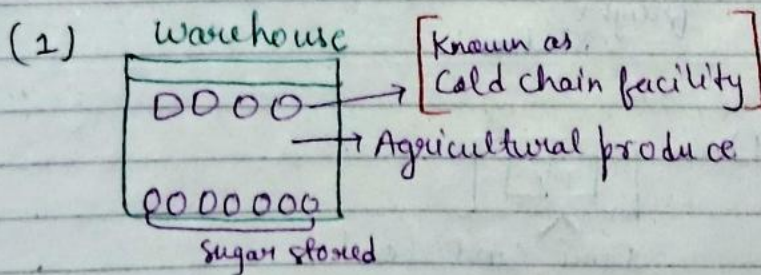 (1) Warehouse
Known as.
Cold chain facility
Agricultural produce
Sugar stored